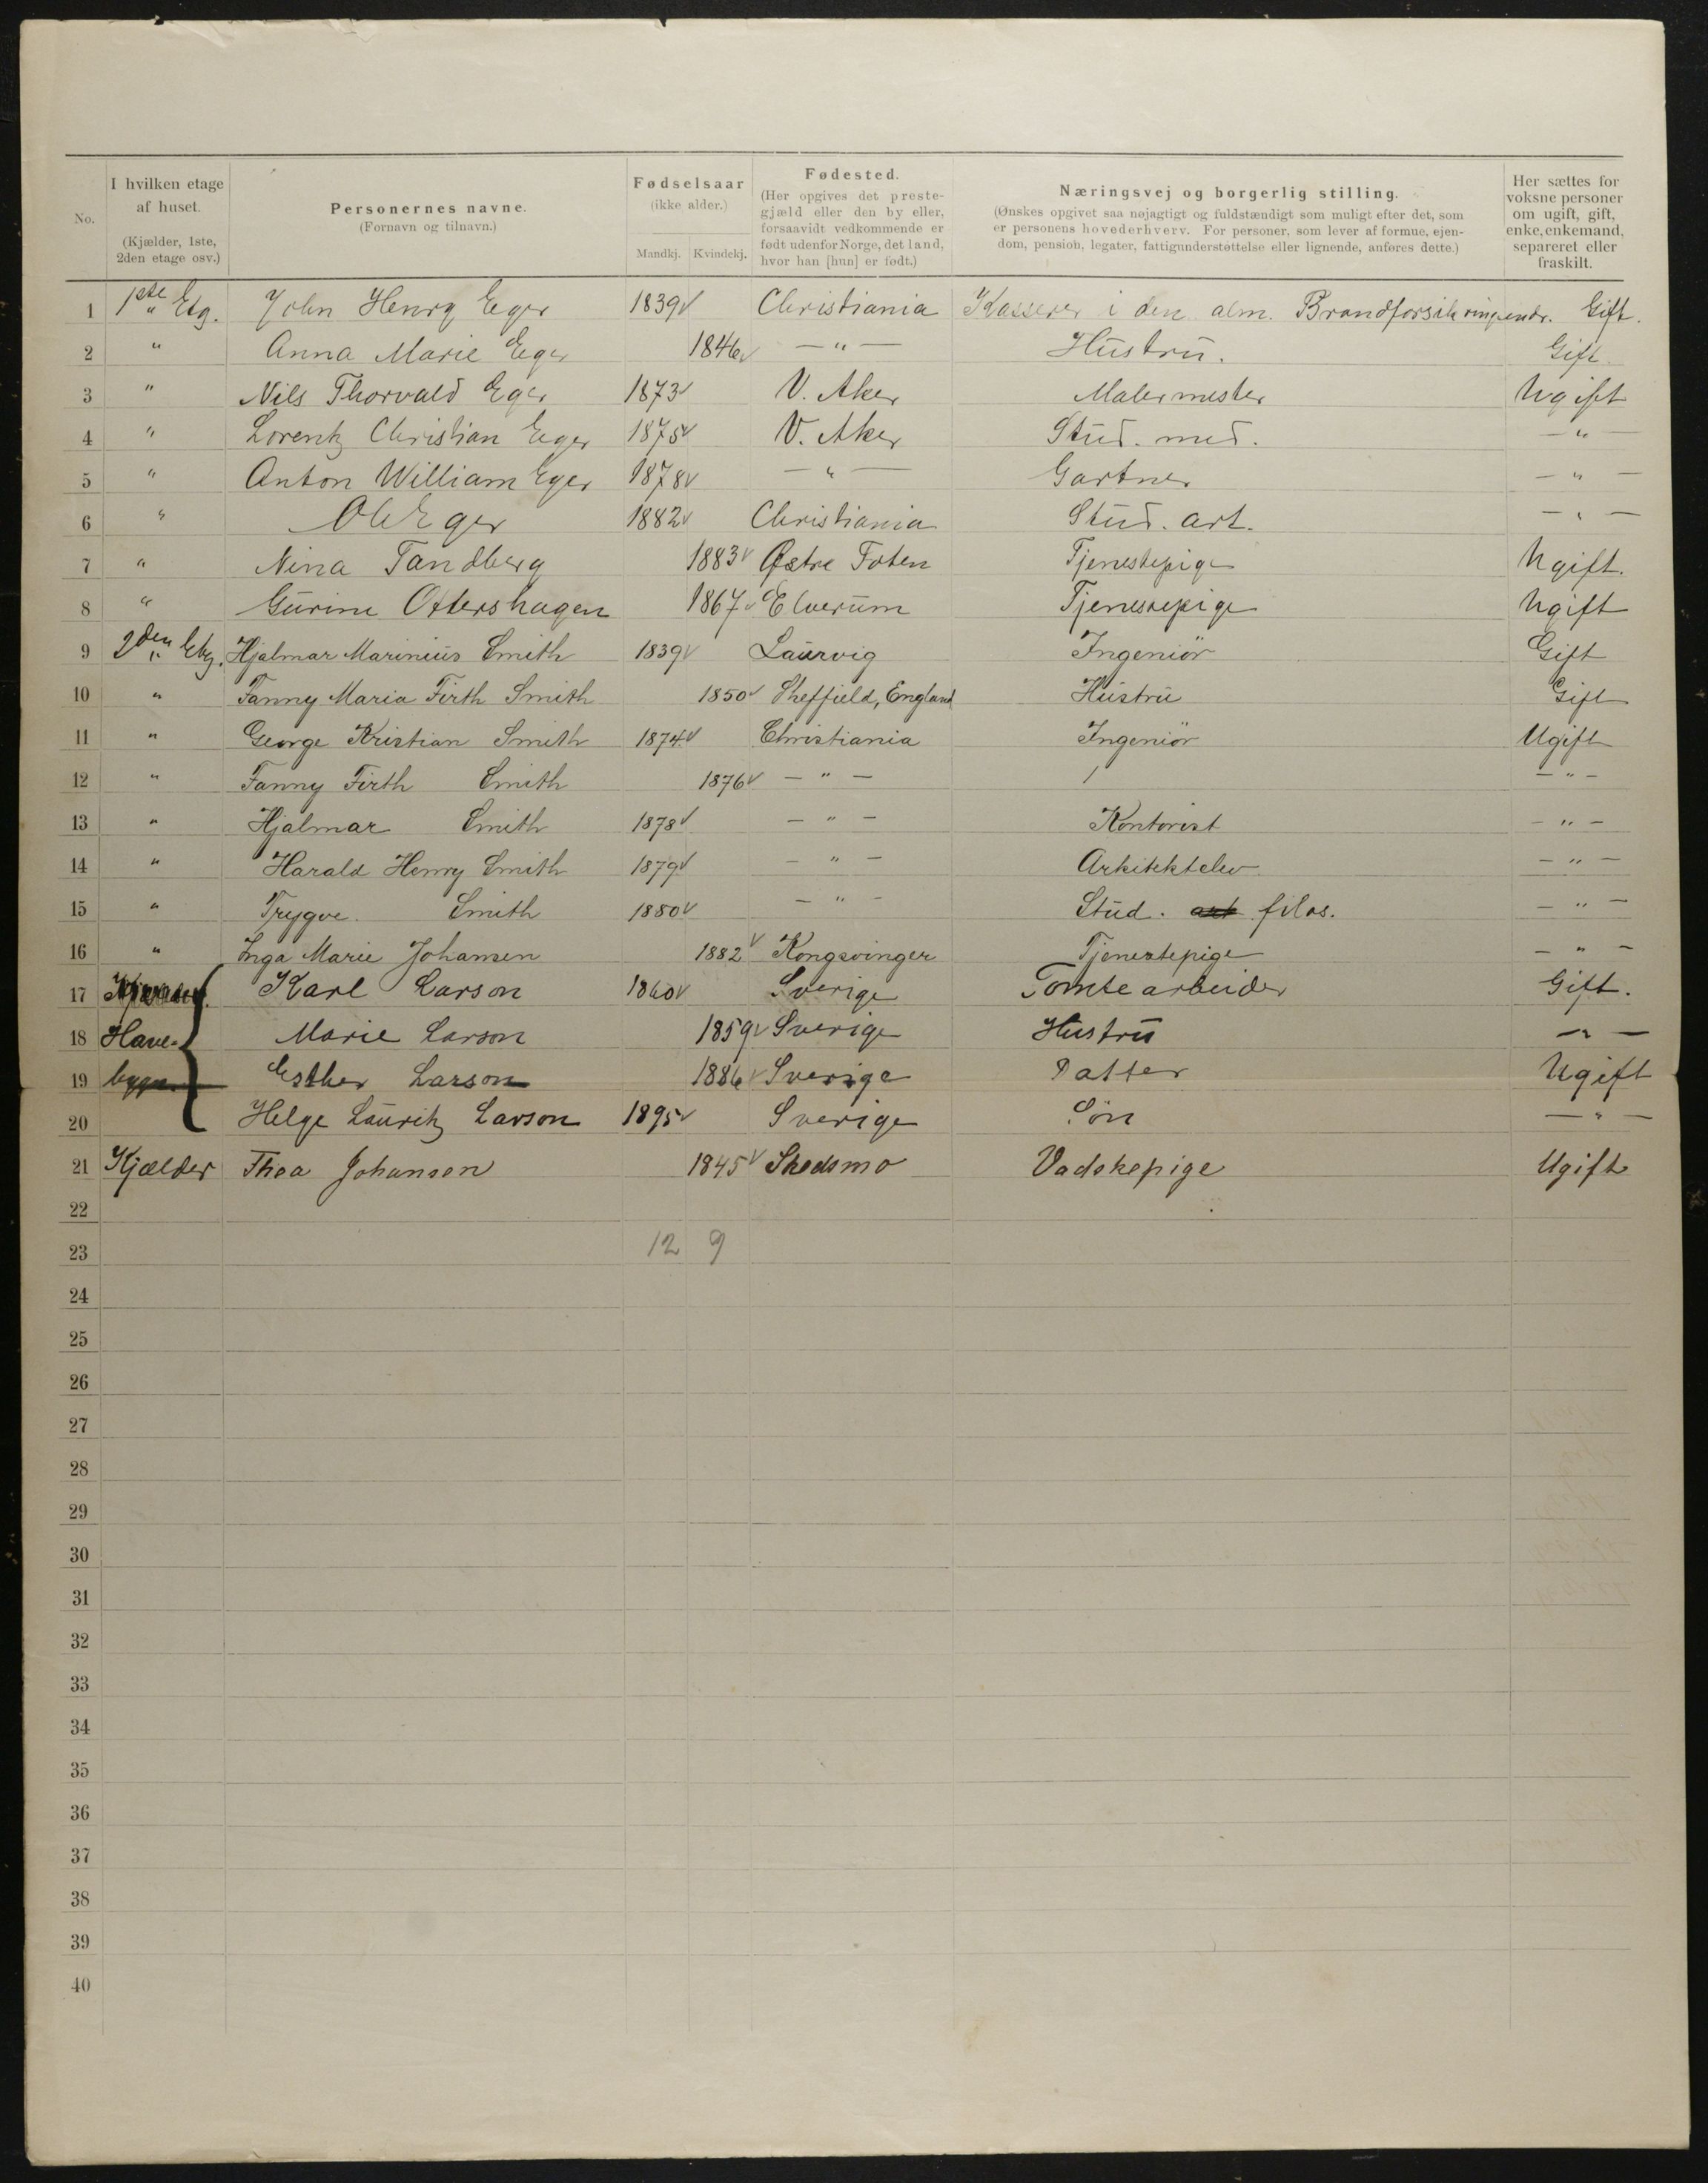 No. I hvilken etage af huset. (Kjælder, 1ste, 2den etage osv.) Personernes navne. (Fornavn og tilnavn.) Fødselsaar (ikke alder.) Mandkj. Kvindekj. Fødested. (Her opgives det prestegjæld eller den by eller, forsaavidt vedkommende er født udenfor Norge, det land, hvor han [hun] er født.) Næringsvej og borgerlig stilling. (Ønskes opgivet saa nøjagtigt og fuldstændigt som muligt efter det, som er personens hovederhverv. For personer, som lever af formue, ejendom, pension, legater, fattigunderstøttelse eller lignende, anføres dette.) Her sættes for voksne personer om ugift, gift, enke, enkemand, separeret eller fraskilt.
1 1ste Etg. John Henry Eger 1839 Christiania Kasserer i den alm. Gift.
2 " Anna Marie Eger 1846 — " — Hustru. Gift
3 " Nils Thorvald Eger 1873 V. Aker Malermester Ugift
4 " Lorentz Christian Eger 1875 V. Aker Stud. med. — " —
5 " Anton William Eger 1878 — " — Gartner — " —
6 " Ole Eger 1882 Christiania Stud. art. — " —
7 " Nina Tandberg 1883 Østre Toten Tjenestepige Ugift.
8 " Gurine Ottershagen 1867 Elverum Tjenestepige Ugift
9 2den Etg. Hjalmar Marinius Smith 1839 Laurvig Ingeniör Gift
10 " Fanny Maria Firth Smith 1850 Sheffield, England Hustru Gift
11 " George Kristian Smith 1874 Christiania Ingeniör Ugift
12 " Fanny Firth Smith 1876 — " — / — " —
13 " Hjalmar Smith 1878 — " — Kontorist — " —
14 " Harald Henry Smith 1879 — " — Arkitektelev — " —
15 " Trygve Smith 1880 — " — Stud. art filos. — " —
16 " Inga Marie Johansen 1882 Kongsvinger Tjenestepige — " —
17 Karl Larson 1860 Sverige Tomtearbeider Gift.
18 Have- Marie Larson 1859 Sverige Hustru — " —
19 bygn. Esther Larson 1886 Sverige Datter Ugift
20 Helge Lauritz Larson 1895 Sverige Søn — " —
21 Kjælder Thea Johansen 1845 Skedsmo Vadskepige Ugift
22
23 12 9
24
25
26
27
28
29
30
31
32
33
34
35
36
37
38
39
40